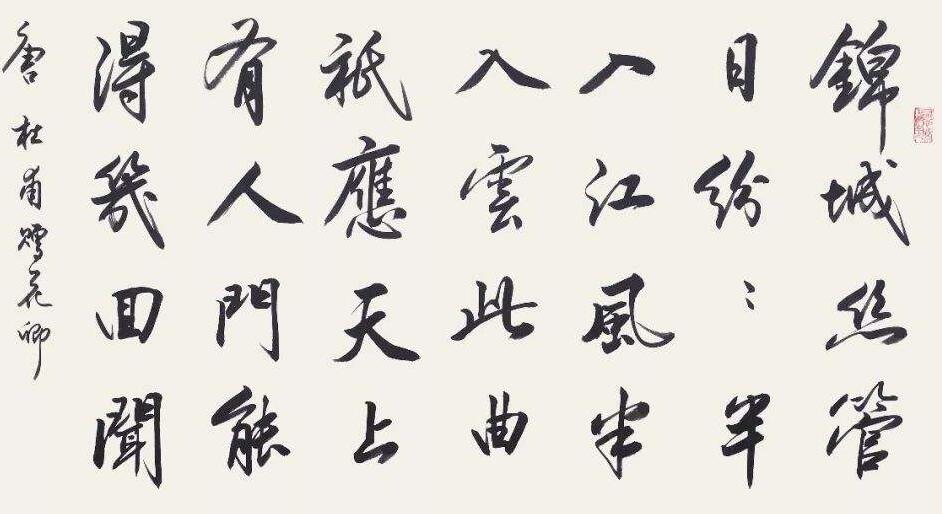 錦城丝管
日紛〻半
入江風半
入雲此曲
祇應天上
有人門能
得幾回聞
唐 杜甫贈花卿